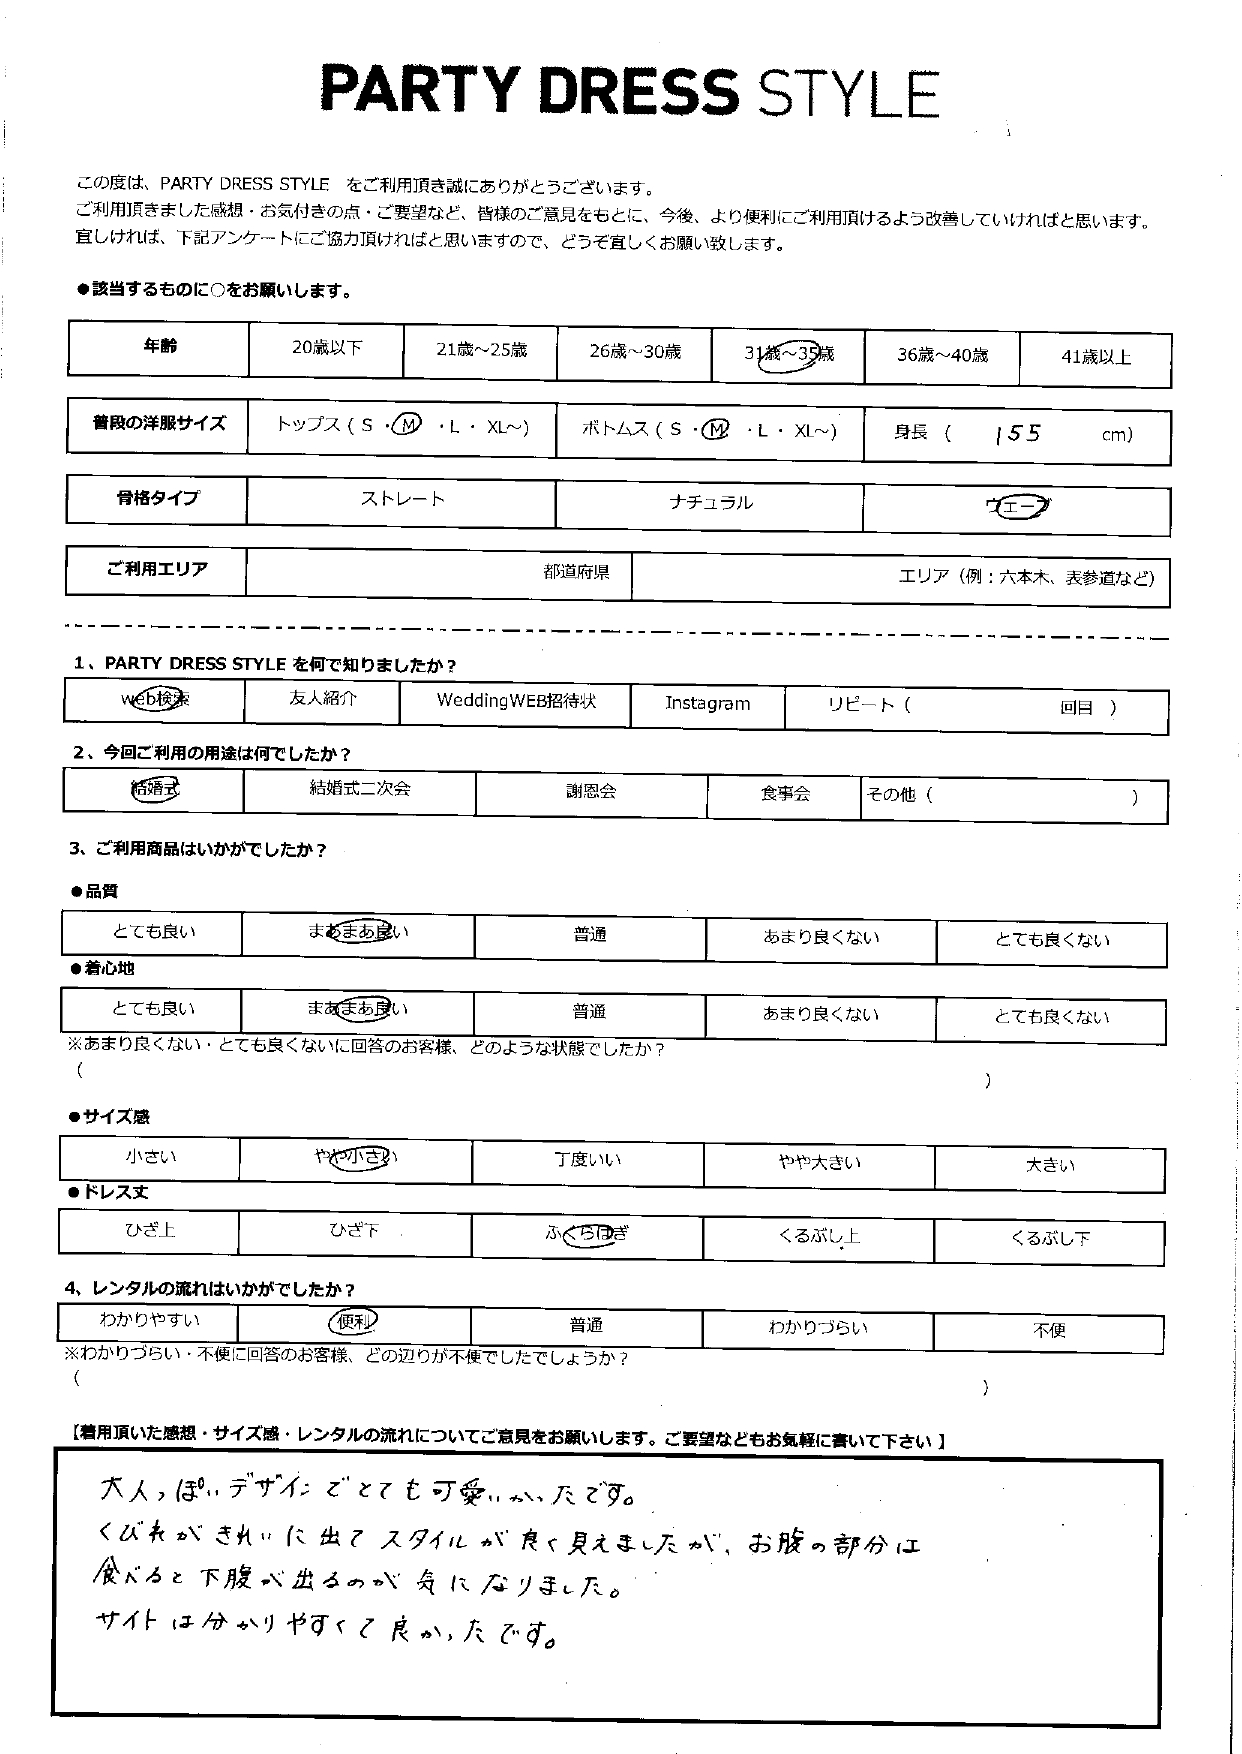 PARTY DRESS STYLE
この度は、PARTY DRESS STYLE をご利用頂き誠にありがとうございます。
ご利用頂きました感想・お気付きの点・ご要望など、皆様のご意見をもとに、今後、より便利にご利用頂けるよう改善していければと思います。
宜しければ、下記アンケートにご協力頂ければと思いますので、どうぞ宜しくお願い致します。
●該当するものに○をお願いします。
年齢 20歳以下 21歳～25歳 26歳～30歳 31歳～35歳 36歳～40歳 41歳以上
普段の洋服サイズ トップス ( S ・ M ・ L ・ XL～) ボトムス ( S ・ M ・ L ・ XL～) 身長 ( 155 cm)
骨格タイプ ストレート ナチュラル ウェーブ
ご利用エリア 都道府県 エリア（例：六本木、表参道など）
1、PARTY DRESS STYLE を何で知りましたか？
web検索 友人紹介 WeddingWEB招待状 Instagram リピート ( 回目 )
2、今回ご利用の用途は何でしたか？
結婚式 結婚式二次会 謝恩会 食事会 その他 ( )
3、ご利用商品はいかがでしたか？
●品質
とても良い まあまあ良い 普通 あまり良くない とても良くない
●着心地
とても良い まあまあ良い 普通 あまり良くない とても良くない
※あまり良くない・とても良くないに回答のお客様、どのような状態でしたか？
( )
●サイズ感
小さい やや小さい 丁度いい やや大きい 大きい
●ドレス丈
ひざ上 ひざ下 ふくらはぎ くるぶし上 くるぶし下
4、レンタルの流れはいかがでしたか？
わかりやすい 便利 普通 わかりづらい 不便
※わかりづらい・不便に回答のお客様、どの辺りが不便でしたでしょうか？
( )
【着用頂いた感想・サイズ感・レンタルの流れについてご意見をお願いします。ご要望などもお気軽に書いて下さい】
大人っぽいデザインでとても可愛いかったです。
くびれがきれいに出てスタイルが良く見えましたが、お腹の部分は
食べると下腹が出るのが気になりました。
サイトは分かりやすくて良かったです。